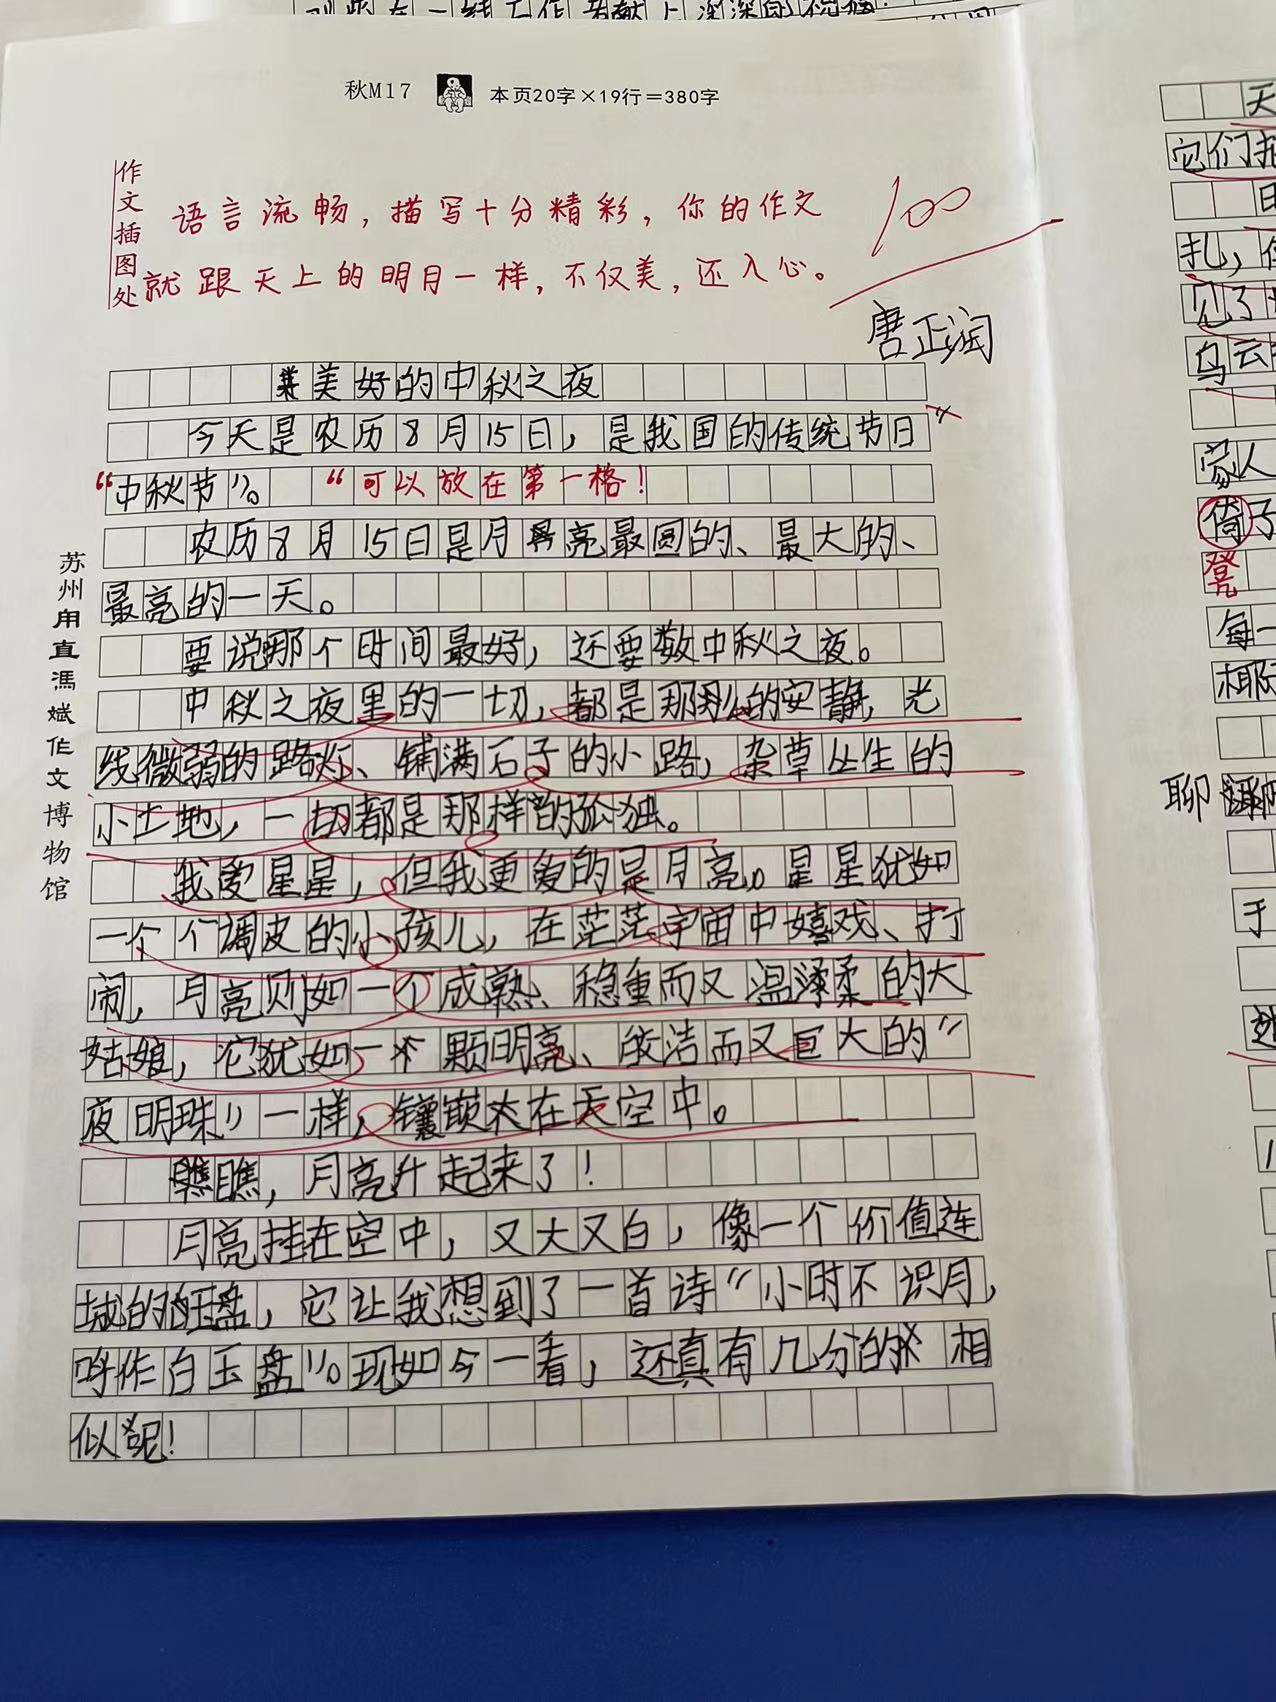 秋M17 本页20字×19行=380字
作文插图处
语言流畅，描写十分精彩，你的作文
就跟天上的明月一样，不仅美，还入心。
100
唐正润
美好的中秋之夜
今天是农历8月15日，是我国的传统节日
“中秋节”。 “可以放在第一格！
农历8月15日是月亮最圆的、最大的、
最亮的一天。
要说那个时间最好，还要数中秋之夜。
中秋之夜里的一切，都是那么的安静，光
线微弱的路灯、铺满石子的小路，杂草丛生的
小土地，一切都是那样的孤独。
我爱星星，但我更爱的是月亮。星星犹如
一个个调皮的小孩儿，在茫茫宇宙中嬉戏、打
闹，月亮则如一个成熟、稳重而又温柔的大
姑娘，它犹如一颗明亮、皎洁而又巨大的“
夜明珠”一样，镶嵌在天空中。
瞧瞧，月亮升起来了！
月亮挂在空中，又大又白，像一个价值连
城的玉盘，它让我想到了一首诗“小时不识月，
呼作白玉盘”。现如今一看，还真有几分的相
似呢！
苏州甪直馮斌作文博物馆
天
它们
扎，
见了
乌云
家人
倚子
凳
每一
相
聊
于